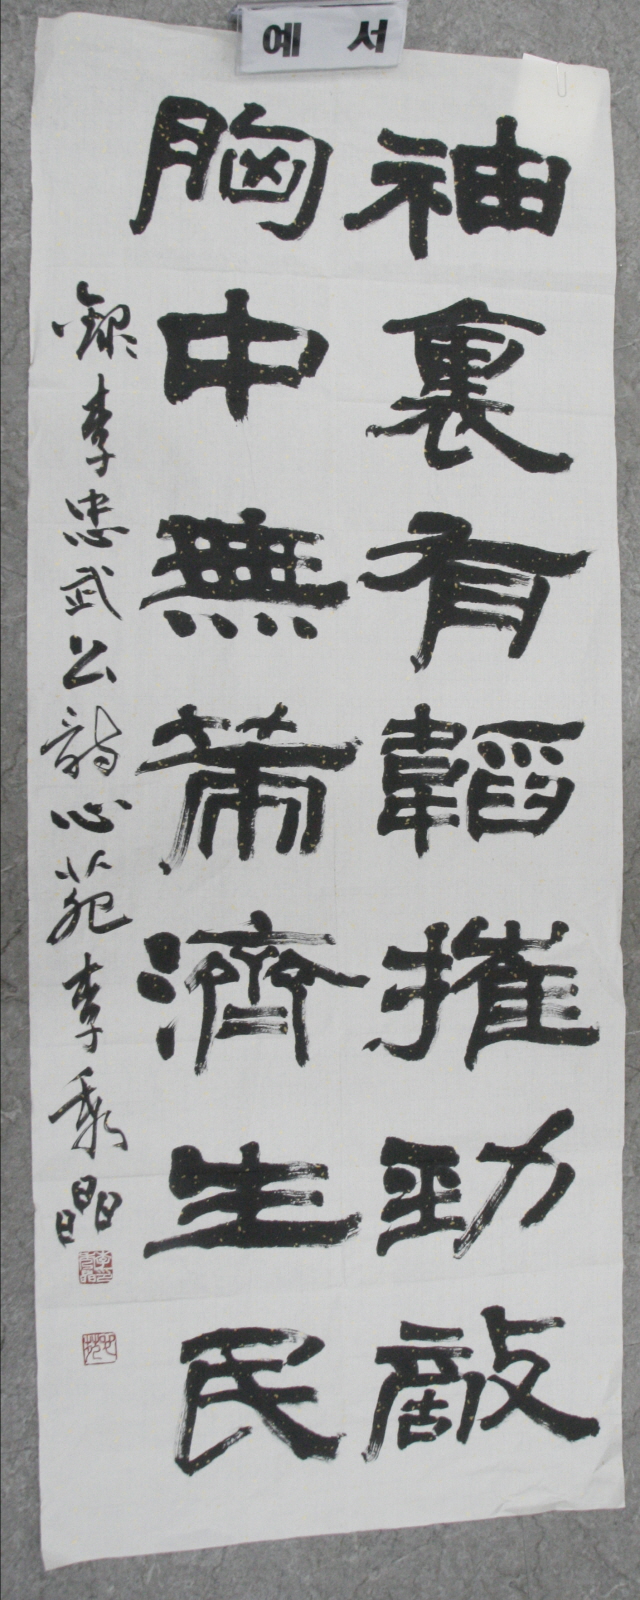 예 서
袖裏有韜摧勁敵
胸中無策濟生民
錄李忠武公詩心苑李承晶